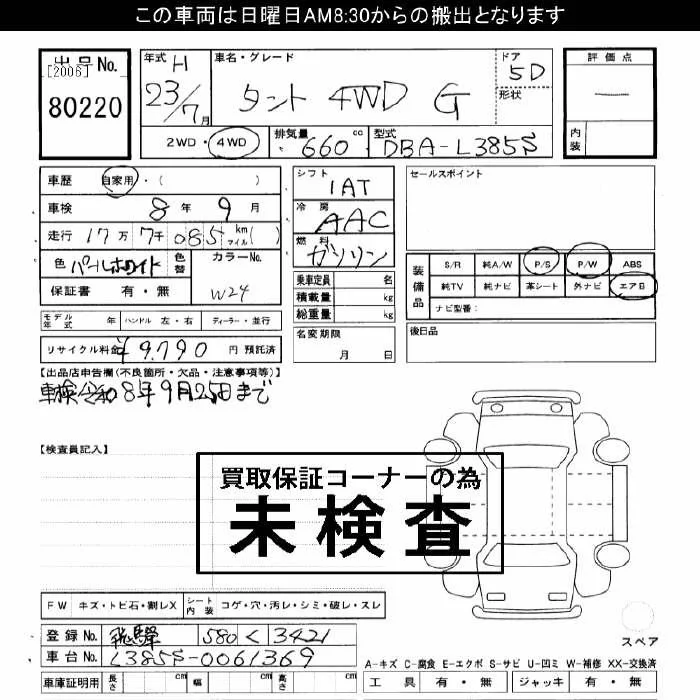 この車両は日曜日AM8:30からの搬出となります
出品No.
[2006]
80220
年式 H 23/7月
車名・グレード
タント 4WD G
ドア 5D
形状
評価点
—
内装
2WD・4WD
排気量 660 cc
型式 DBA-L385S
車歴 自家用・( )
車検 8年 9月
走行 17万 7千 085 km マイル( )
色 パールホワイト 色替 カラーNo.
W24
保証書 有・無
シフト 1AT
冷房 AAC
燃料 ガソリン
乗車定員 名
積載量 kg
総重量 kg
セールスポイント
装備品
S/R 純A/W P/S P/W ABS
純TV 純ナビ 革シート 外ナビ エアB
ナビ型番:
モデル年式 年 ハンドル 左・右 ディーラー・並行
名変期限
月 日
後日品
リサイクル料金 ¥9,790 円 預託済
【出品店申告欄(不良箇所・欠品・注意事項等)】
車検令和8年9月25日まで
【検査員記入】
買取保証コーナーの為
未検査
FW キズ・トビ石・割レX シート内装 コゲ・穴・汚レ・シミ・破レ・スレ
登録No. 飛騨 580 く 3421
車台No. L385S-0061369
車庫証明用 長さ cm 幅 cm 高さ cm
スペア
A-キズ C-腐食 E-エクボ S-サビ U-凹ミ W-補修 XX-交換済
工具 有・無 ジャッキ 有・無